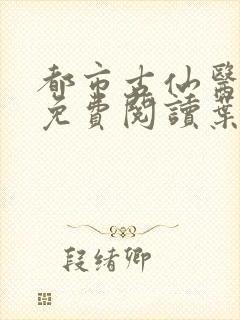 都市古仙醫
免費閱讀葉
段绪卿